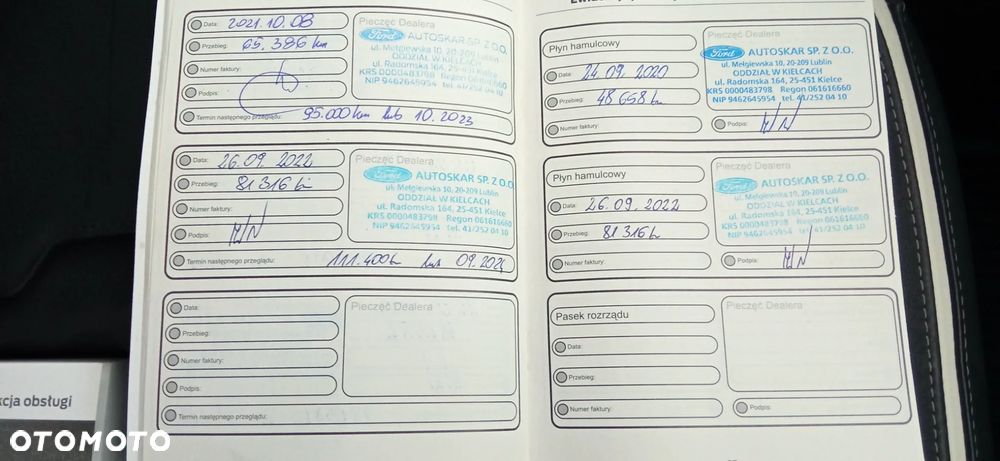 Data: 2021.10.08
Przebieg: 65.386 km
Numer faktury:
Podpis:
Termin następnego przeglądu: 95.000 km lub 10.2023
Pieczęć Dealera
Ford AUTOSKAR SP. Z O.O.
ul. Mełgiewska 10, 20-209 Lublin
ODDZIAŁ W KIELCACH
ul. Radomska 164, 25-451 Kielce
KRS 0000483798 Regon 061616660
NIP 9462645954 tel. 41/252 04 10
Data: 26.09.2022
Przebieg: 81316 km
Numer faktury:
Podpis:
Termin następnego przeglądu: 111.400 km lub
Pieczęć Dealera
Ford AUTOSKAR SP. Z O.O.
ul. Mełgiewska 10, 20-209 Lublin
ODDZIAŁ W KIELCACH
ul. Radomska 164, 25-451 Kielce
KRS 0000483798 Regon 061616660
NIP 9462645954 tel. 41/252 04 10
Data:
Przebieg:
Numer faktury:
Podpis:
Termin następnego przeglądu:
Pieczęć Dealera
Płyn hamulcowy
Data: 24.09.2020
Przebieg: 48658 km
Numer faktury:
Ford AUTOSKAR SP. Z O.O.
ul. Mełgiewska 10, 20-209 Lublin
ODDZIAŁ W KIELCACH
ul. Radomska 164, 25-451 Kielce
KRS 0000483798 Regon 061616660
NIP 9462645954 tel. 41/252 04 10
Podpis:
Płyn hamulcowy
Data: 26.09.2022
Przebieg: 81316 km
Numer faktury:
Pieczęć Dealera
Ford AUTOSKAR SP. Z O.O.
ul. Mełgiewska 10, 20-209 Lublin
ODDZIAŁ W KIELCACH
ul. Radomska 164, 25-451 Kielce
KRS 0000483798 Regon 061616660
NIP 9462645954 tel. 41/252 04 10
Podpis:
Pasek rozrządu
Data:
Przebieg:
Numer faktury:
Pieczęć Dealera
Podpis:
kcja obsługi
OTOMOTO